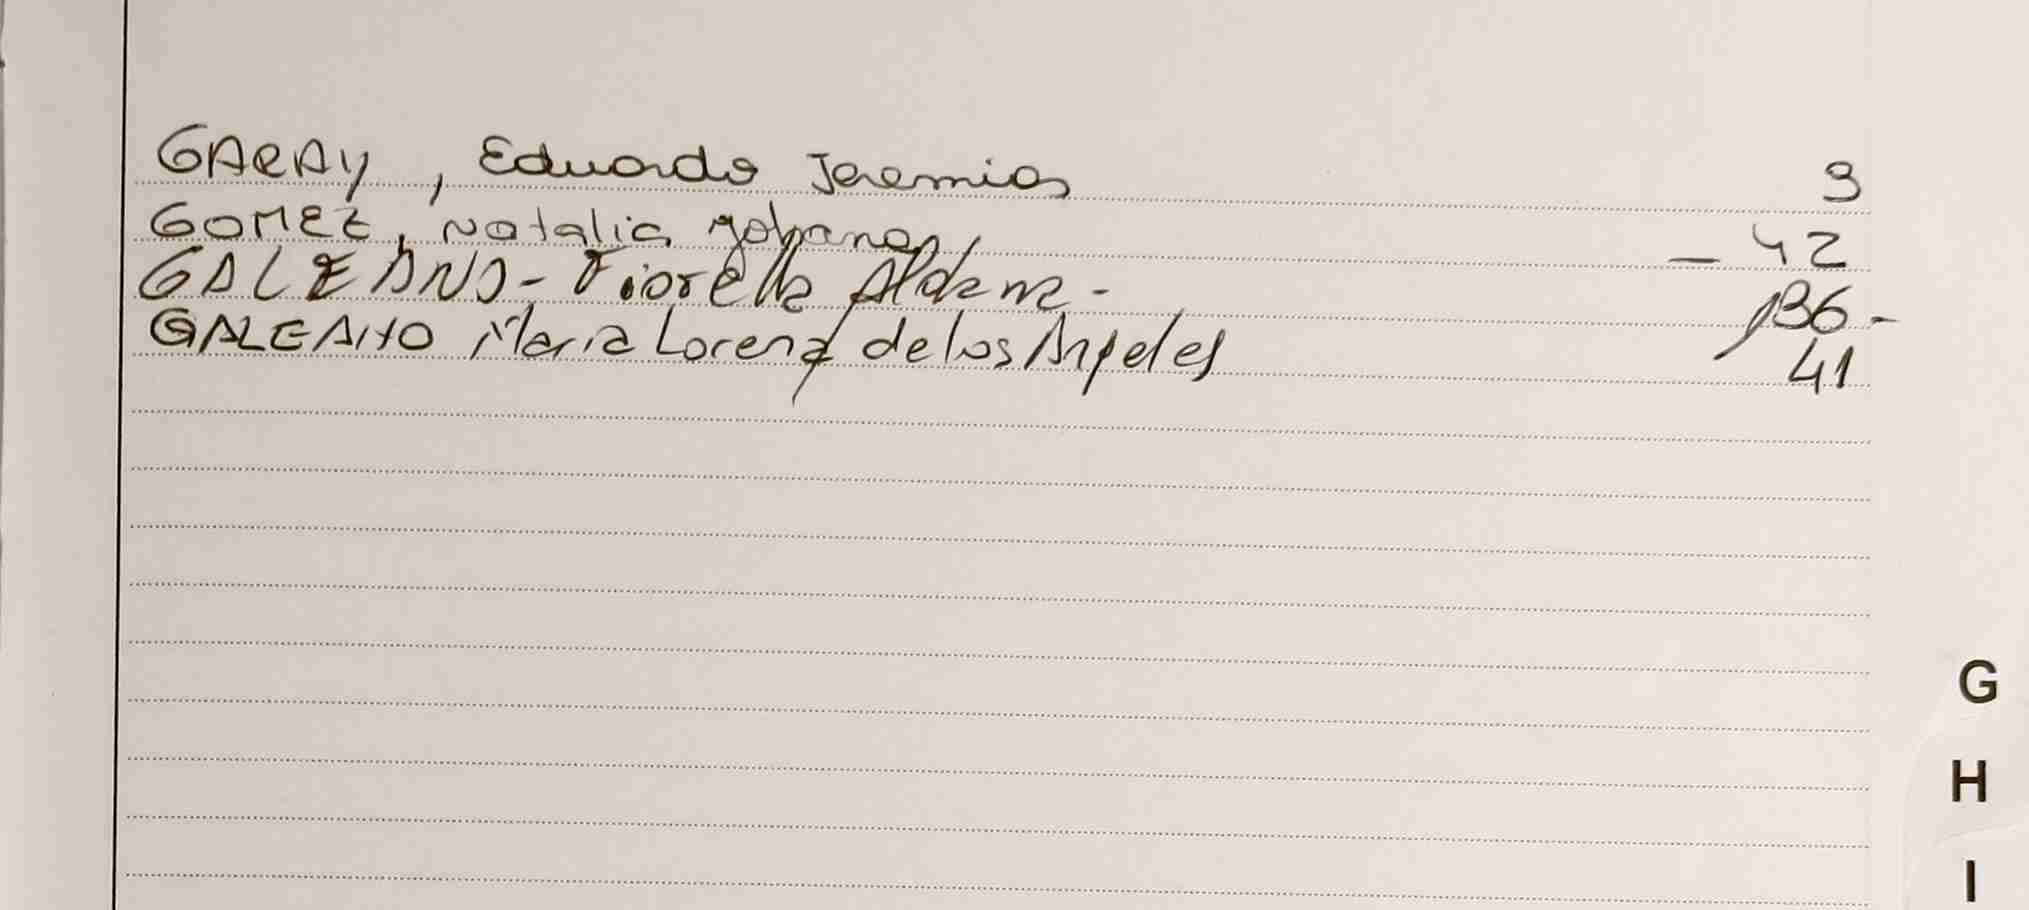 GARAY, Eduardo Jeremias 9
GOMEZ, Natalia Yohana - 42
GALEANO - Fiorella Aldana - 136 -
GALEANO Maria Lorena de los Angeles 41
G
H
I